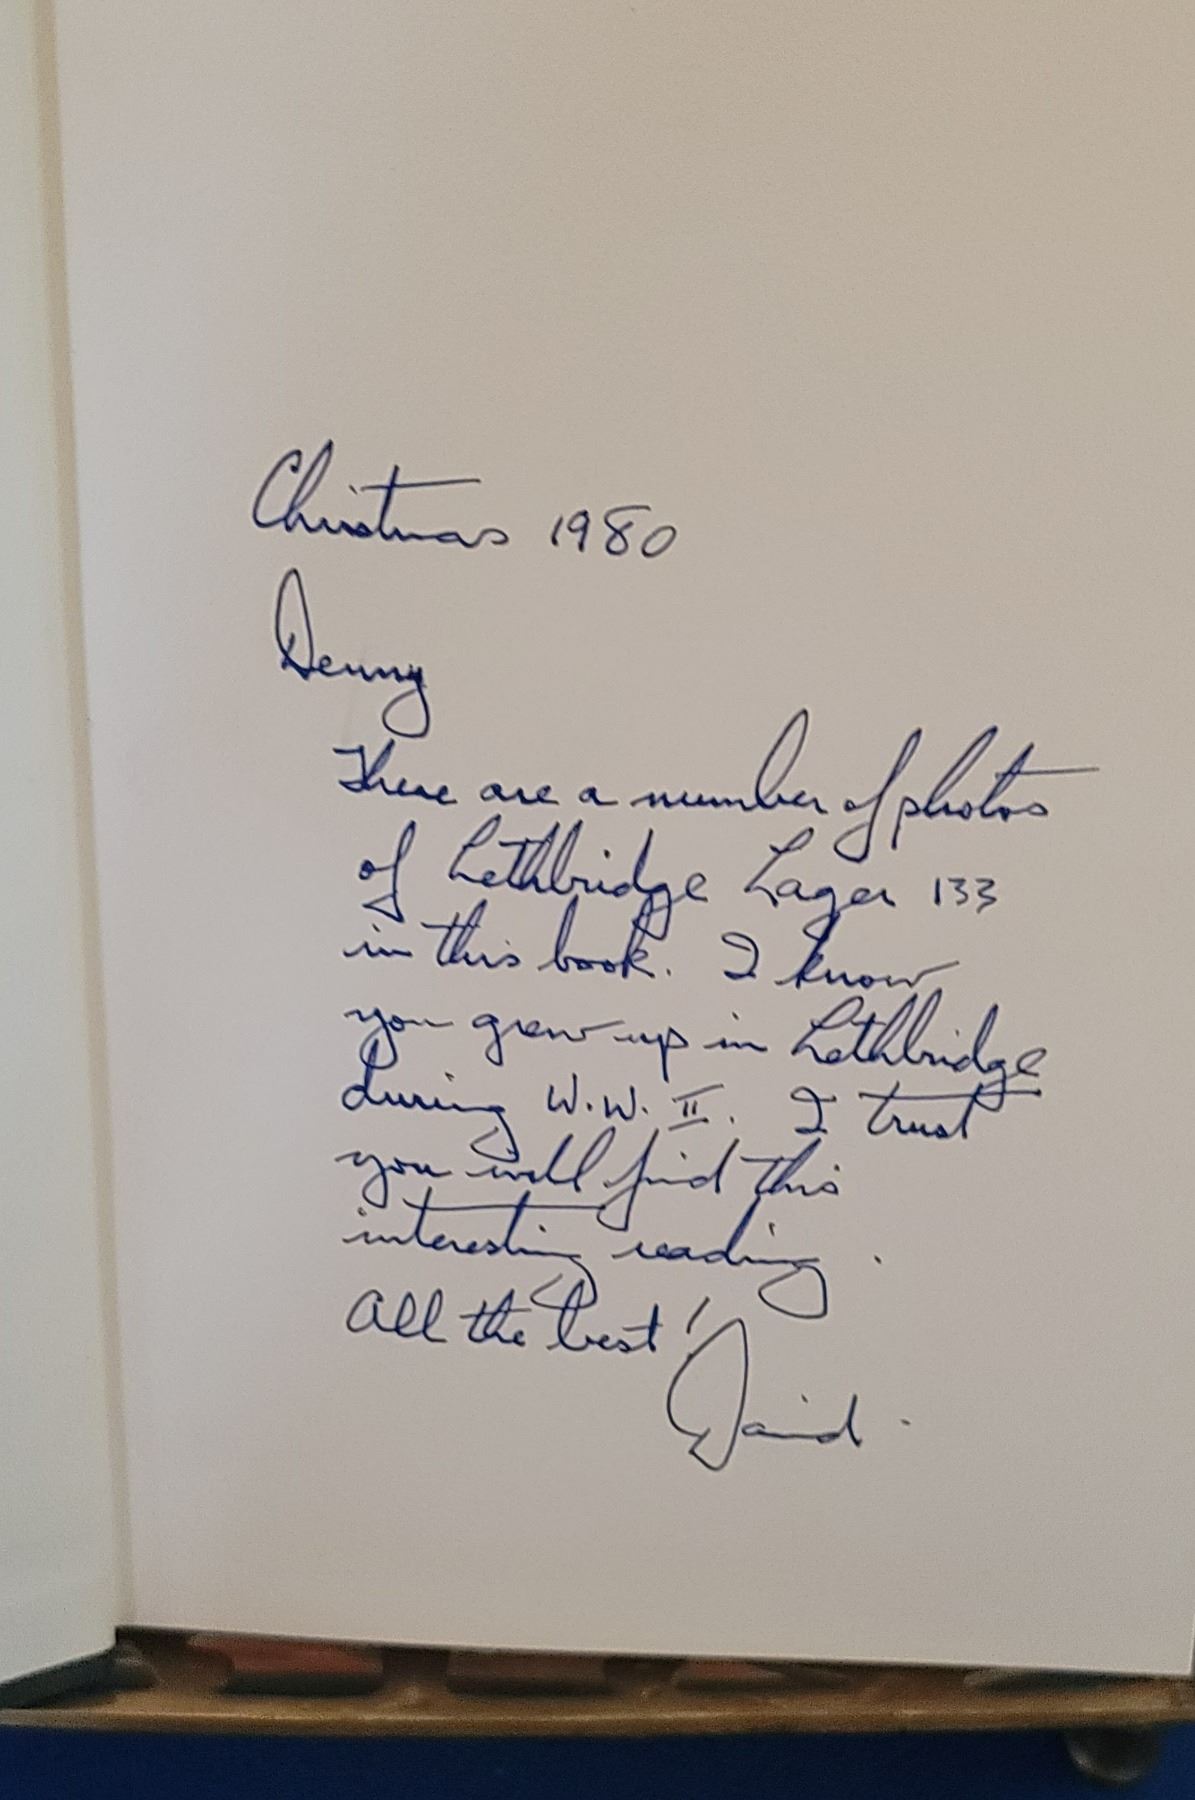 Christmas 1980
Denny
There are a number of photos
of Lethbridge Lager 133
in this book. I know
you grew up in Lethbridge
during W.W. II. I trust
you will find this
interesting reading.
All the best!
David.